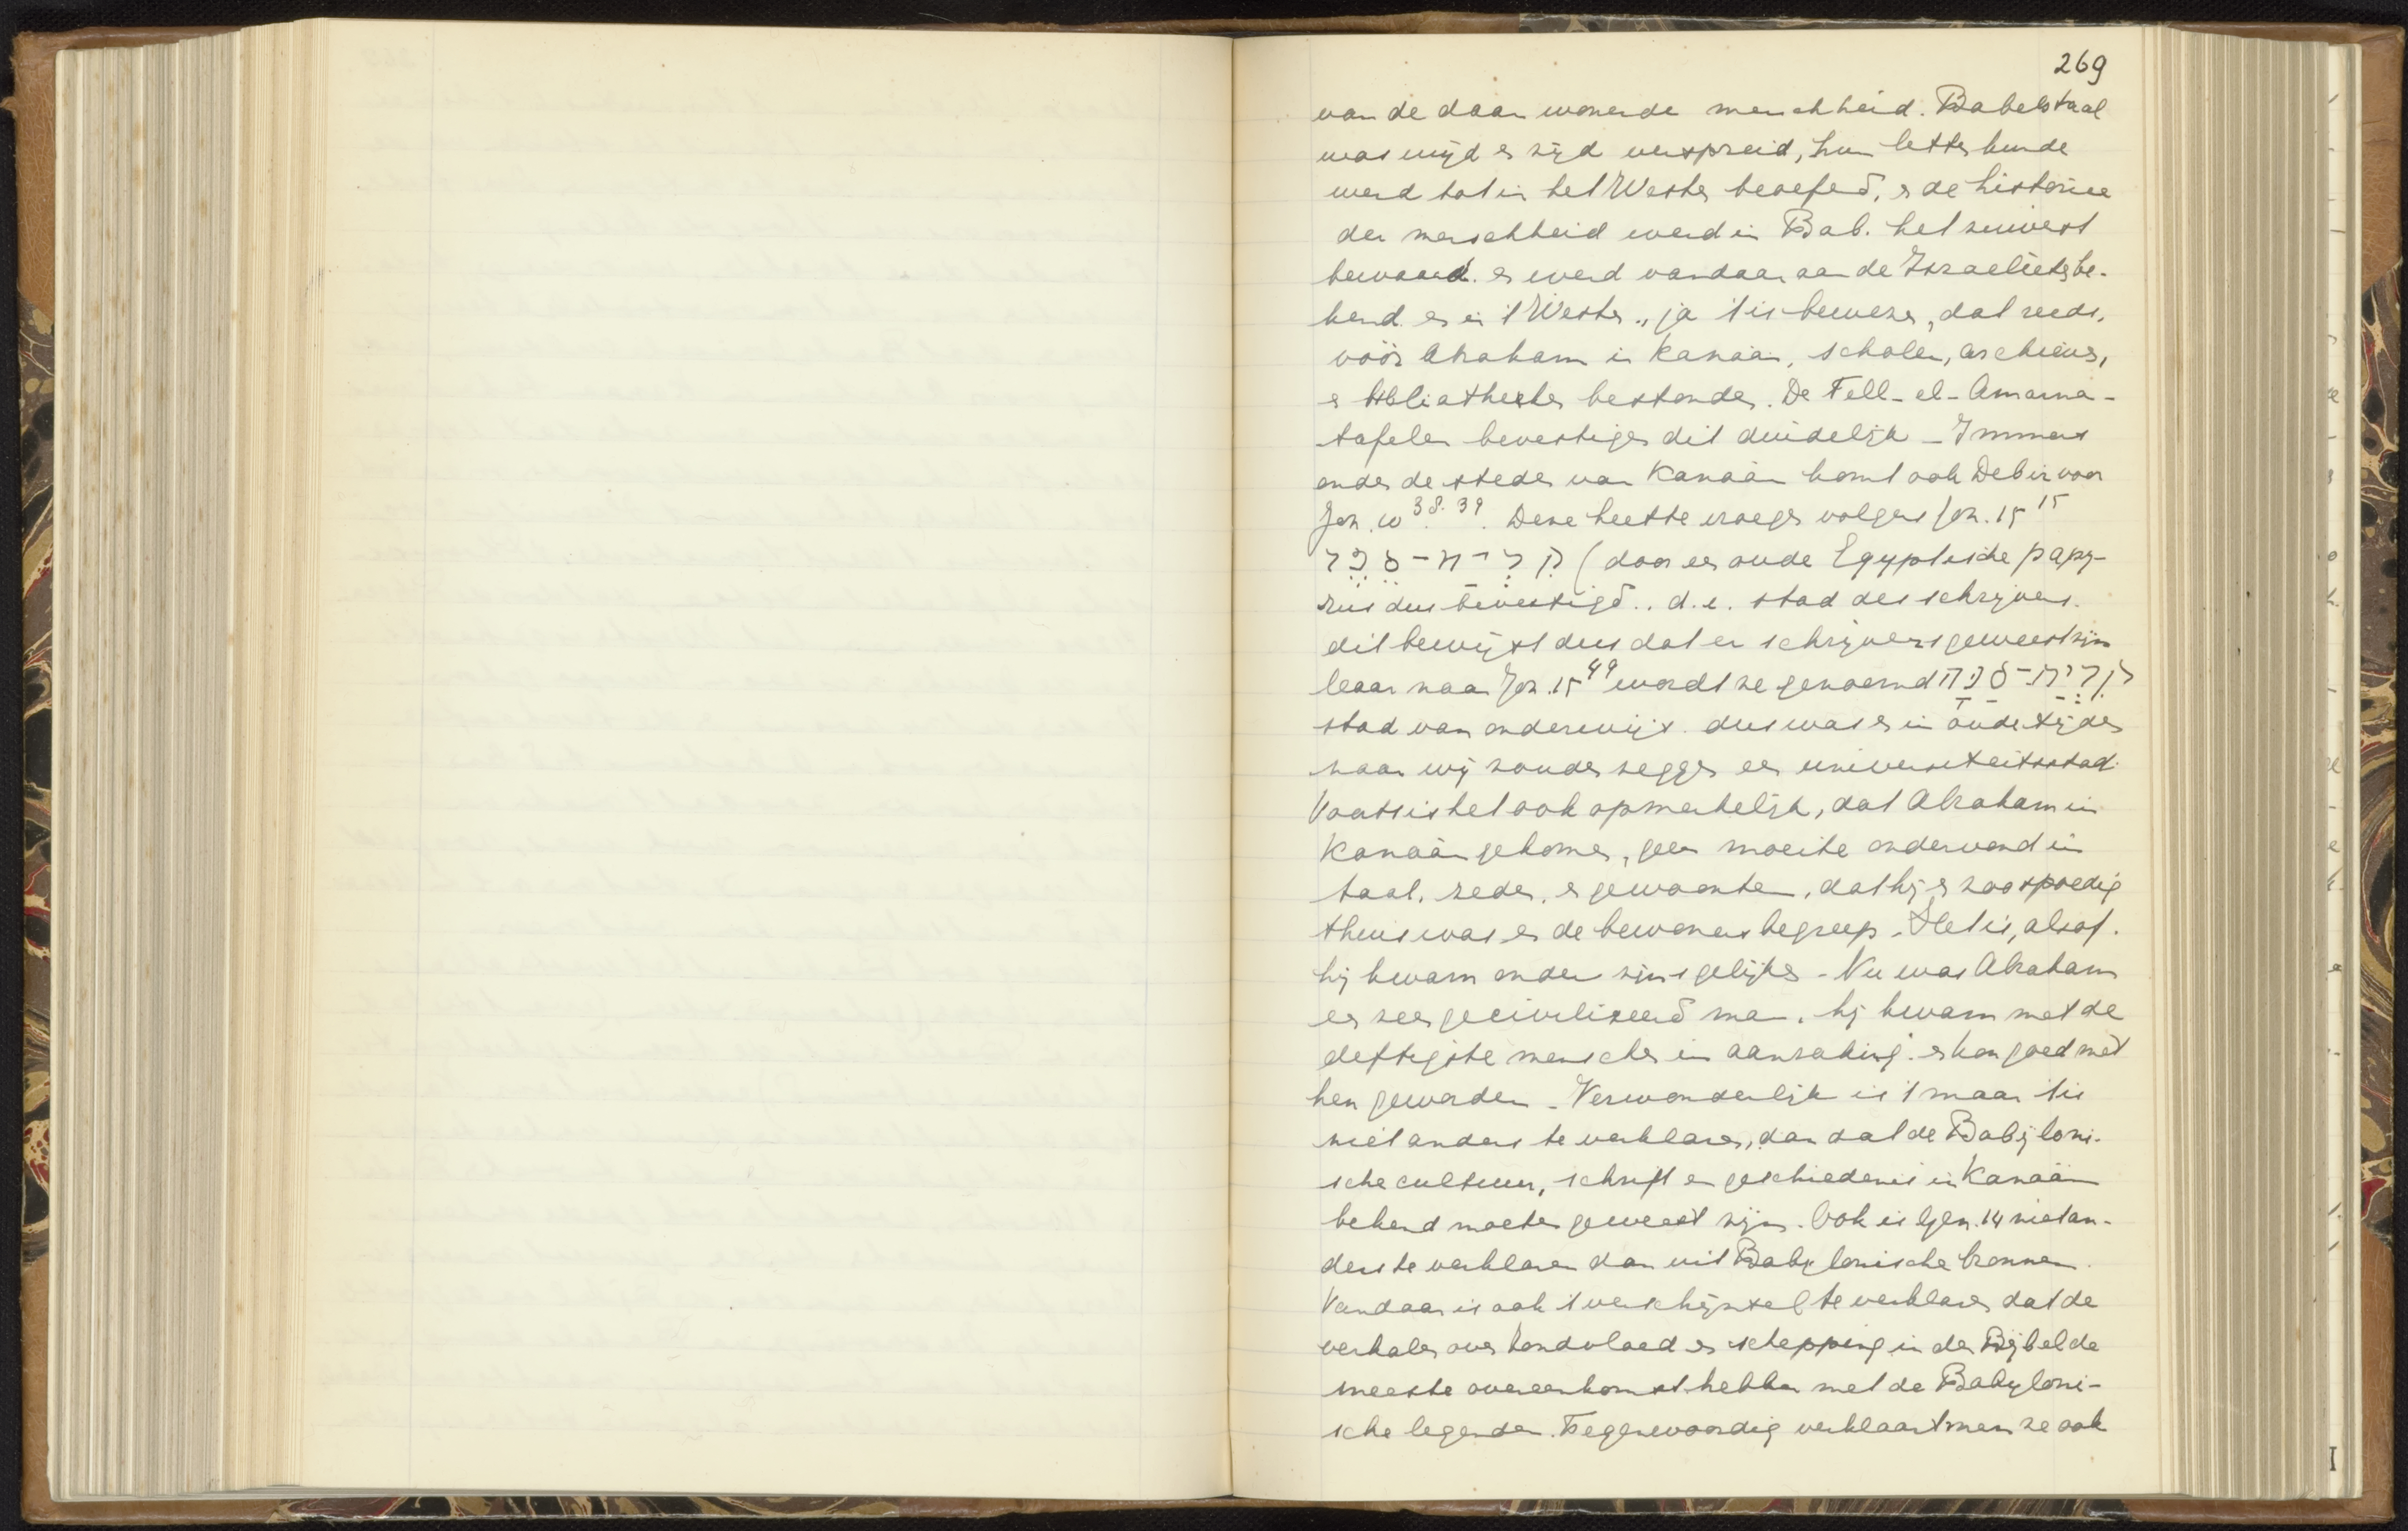 269
van de daar wonende menschheid. Babelstaal
was wijd en zijd verspreid, hun letterkunde
werd tot in het Westen beoefend, en de historie
der menschheid werd in Bab. het zuiverst
bewaard. en werd vandaar aan de Israelieten be-
kend en in 't Westen., ja 't is bewezen, dat reeds,
vóór Abraham in Kanaän, scholen, archieven,
en bibliotheken bestonden. De Tell-el-Amarna-
tafelen bevestigen dit duidelijk - Immers
onder de steden van Kanaän komt ook Debir voor
Joz. 10 38. 39. Deze heette vroeger volgens Joz. 15 15
קִרְיַת־סֵפֶר (door een oude Egyptische papy-
rus dus bevestigd.. d.i. stad des schrijvers.
dit bewijst dus dat er schrijvers geweest zijn
maar naar Joz. 15 49 wordt ze genoemd קִרְיַת־סַנָּה
stad van onderwijs. dus was er in oude tijden
naar wij zouden zeggen een universiteitsstad.
Voorts is het ook opmerkelijk, dat Abraham in
Kanaän gekomen, geen moeite ondervond in
taal, zeden, en gewoonten, dat hij er zoo spoedig
thuis was en de bewoners begreep. Het is, alsof.
hij kwam onder zijns gelijken - Nu was Abraham
een zeer geciviliseerd man. hij kwam met de
deftigste menschen in aanraking. en kon goed met
hen geworden - Verwonderlijk is 't maar 't is
niet anders te verklaren, dan dat de Babyloni-
sche cultuur, schrift en geschiedenis in Kanaän
bekend moeten geweest zijn. Ook is Gen. 14 niet an-
ders te verklaren dan uit Babylonische bronnen.
Vandaar is ook 't verschijnsel te verklaren dat de
verhalen over zondvloed en schepping in den Bijbel de
meeste overeenkomst hebben met de Babyloni-
sche legenden. Tegenwoordig verklaart men ze ook